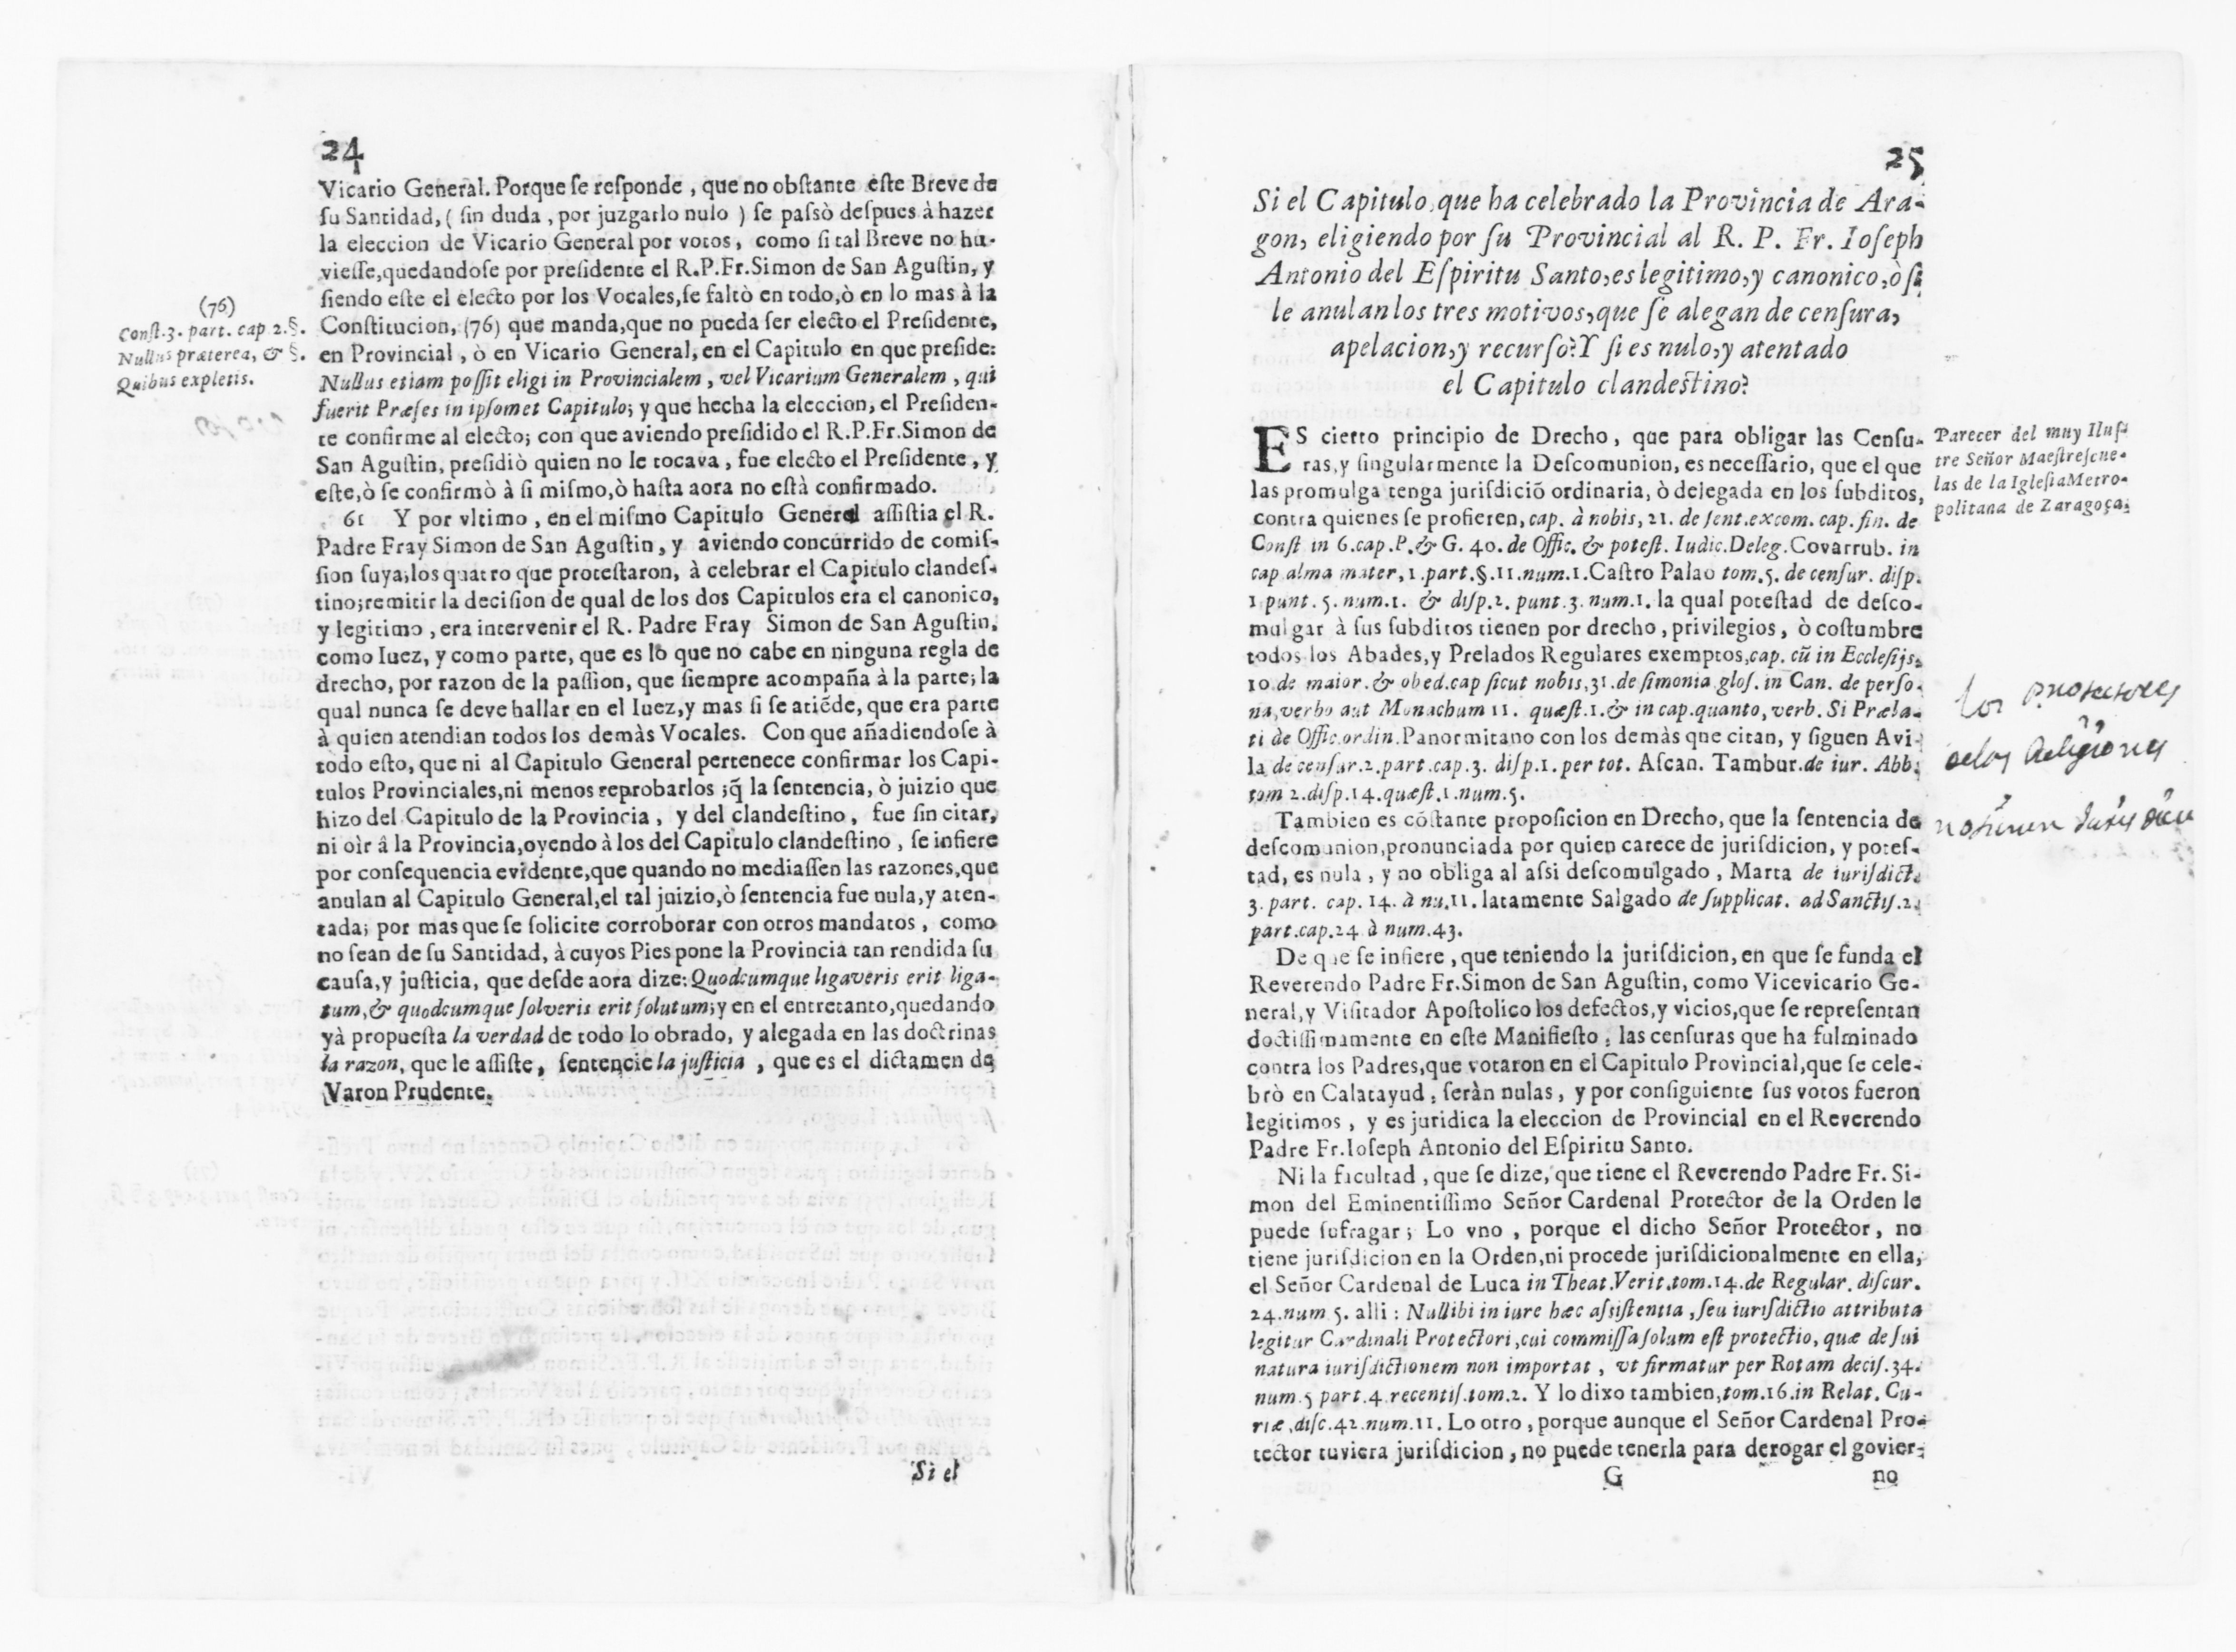 24
Vicario General. Porque se responde, que no obstante este Breve de
su Santidad, ( sin duda, por juzgarlo nulo ) se passò despues à hazer
la eleccion de Vicario General por votos, como si tal Breve no hu-
viesse, quedandose por presidente el R.P.Fr.Simon de San Agustin, y
siendo este el electo por los Vocales, se faltò en todo, ò en lo mas à la
Constitucion, (76) que manda, que no pueda ser electo el Presidente,
en Provincial, ò en Vicario General, en el Capitulo en que preside:
Nullus etiam possit eligi in Provincialem, vel Vicarium Generalem, qui
fuerit Præses in ipsomet Capitulo; y que hecha la eleccion, el Presiden-
te confirme al electo; con que aviendo presidido el R.P.Fr.Simon de
San Agustin, presidiò quien no le tocava, fue electo el Presidente, y
este, ò se confirmò à si mismo, ò hasta aora no està confirmado.
61 Y por vltimo, en el mismo Capitulo General assistia el R.
Padre Fray Simon de San Agustin, y aviendo concurrido de comis-
sion suya, los quatro que protestaron, à celebrar el Capitulo clandes-
tino; remitir la decision de qual de los dos Capitulos era el canonico,
y legitimo, era intervenir el R. Padre Fray Simon de San Agustin,
como Iuez, y como parte, que es lo que no cabe en ninguna regla de
drecho, por razon de la passion, que siempre acompaña à la parte; la
qual nunca se deve hallar en el Iuez, y mas si se atiēde, que era parte
à quien atendian todos los demàs Vocales. Con que añadiendose à
todo esto, que ni al Capitulo General pertenece confirmar los Capi-
tulos Provinciales, ni menos reprobarlos; q̃ la sentencia, ò juizio que
hizo del Capitulo de la Provincia, y del clandestino, fue sin citar,
ni oìr â la Provincia, oyendo à los del Capitulo clandestino, se infiere
por consequencia evidente, que quando no mediassen las razones, que
anulan al Capitulo General, el tal juizio, ò sentencia fue nula, y aten-
tada; por mas que se solicite corroborar con otros mandatos, como
no sean de su Santidad, à cuyos Pies pone la Provincia tan rendida su
causa, y justicia, que desde aora dize: Quodcumque ligaveris erit liga-
tum, & quodcumque solveris erit solutum; y en el entretanto, quedando
yà propuesta la verdad de todo lo obrado, y alegada en las doctrinas
la razon, que le assiste, sentencie la justicia, que es el dictamen de
Varon Prudente.
Si el
(76)
Const.3. part. cap 2.§.
Nullus præterea, & §.
Quibus expletis.
25
Si el Capitulo, que ha celebrado la Provincia de Ara-
gon, eligiendo por su Provincial al R. P. Fr. Ioseph
Antonio del Espiritu Santo, es legitimo, y canonico, ò si
le anulan los tres motivos, que se alegan de censura,
apelacion, y recurso? Y si es nulo, y atentado
el Capitulo clandestino?
ES cierto principio de Drecho, que para obligar las Censu-
ras, y singularmente la Descomunion, es necessario, que el que
las promulga tenga jurisdiciō ordinaria, ò delegada en los subditos,
contra quienes se profieren, cap. à nobis, 21. de sent.excom. cap. fin. de
Const in 6.cap.P.& G. 40. de Offic. & potest. Iudic.Deleg.Covarrub. in
cap alma mater, 1.part.§.11.num.1.Castro Palao tom.5. de censur. disp.
1 punt. 5. num.1. & disp.2. punt.3. num.1. la qual potestad de desco-
mulgar à sus subditos tienen por drecho, privilegios, ò costumbre
todos los Abades, y Prelados Regulares exemptos, cap. cū in Ecclesijs,
10 de maior. & obed.cap sicut nobis, 31. de simonia glos. in Can. de perso-
na, verbo aut Monachum 11. quæst.1.& in cap.quanto, verb. Si Præla-
ti de Offic.ordin.Panormitano con los demàs que citan, y siguen Avi-
la de censur.2.part.cap.3. disp.1. per tot. Ascan. Tambur.de iur. Abb.
tom 2.disp.14.quæst.1.num.5.
Tambien es cōstante proposicion en Drecho, que la sentencia de
descomunion, pronunciada por quien carece de jurisdicion, y potes-
tad, es nula, y no obliga al assi descomulgado, Marta de iurisdict.
3. part. cap. 14. à nu.11. latamente Salgado de supplicat. ad Sanctis.2.
part.cap.24 à num.43.
De que se infiere, que teniendo la jurisdicion, en que se funda el
Reverendo Padre Fr.Simon de San Agustin, como Vicevicario Ge-
neral, y Visitador Apostolico los defectos, y vicios, que se representan
doctissimamente en este Manifiesto, las censuras que ha fulminado
contra los Padres, que votaron en el Capitulo Provincial, que se cele-
brò en Calatayud, seràn nulas, y por consiguiente sus votos fueron
legitimos, y es juridica la eleccion de Provincial en el Reverendo
Padre Fr.Ioseph Antonio del Espiritu Santo.
Ni la facultad, que se dize, que tiene el Reverendo Padre Fr. Si-
mon del Eminentissimo Señor Cardenal Protector de la Orden le
puede sufragar; Lo vno, porque el dicho Señor Protector, no
tiene jurisdicion en la Orden, ni procede jurisdicionalmente en ella,
el Señor Cardenal de Luca in Theat.Verit.tom.14.de Regular. discur.
24.num 5. alli: Nullibi in iure hæc assistentia, seu iurisdictio attributa
legitur Cardinali Protectori, cui commissa solum est protectio, quæ de sui
natura iurisdictionem non importat, vt firmatur per Rotam decis.34.
num.5 part.4.recentis.tom.2. Y lo dixo tambien, tom.16.in Relat. Cu-
riæ, disc.42.num.11. Lo otro, porque aunque el Señor Cardenal Pro-
tector tuviera jurisdicion, no puede tenerla para derogar el govier-
G no
Parecer del muy Ilus-
tre Señor Maestrescue-
las de la Iglesia Metro-
politana de Zaragoça.
los protectores
delas Religiones
no tienen